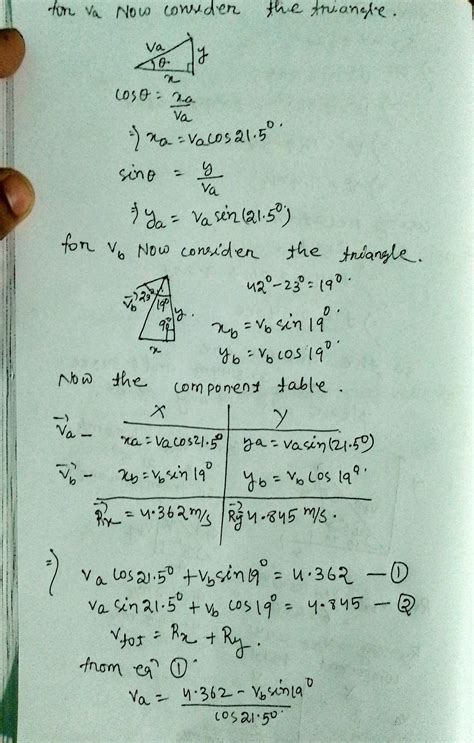 for va Now consider the triangle.
va y
θ
x
cosθ = xa/va
⇒ xa = va cos 21.5°
sinθ = y/va
⇒ ya = va sin(21.5°)
for vb Now consider the triangle.
vb 23° 19° y 42° - 23° = 19°
90 x
xb = vb sin 19°
yb = vb cos 19°
Now the component table.
X Y
va - xa = va cos 21.5° ya = va sin(21.5°)
vb - xb = vb sin 19° yb = vb cos 19°
Rx = 4.362 m/s Ry 4.845 m/s.
⇒ va cos 21.5° + vb sin 19° = 4.362 — ①
va sin 21.5° + vb cos 19° = 4.845 — ②
vtot = Rx + Ry.
from eqn ①
va = 4.362 - vb sin 19° / cos 21.50°